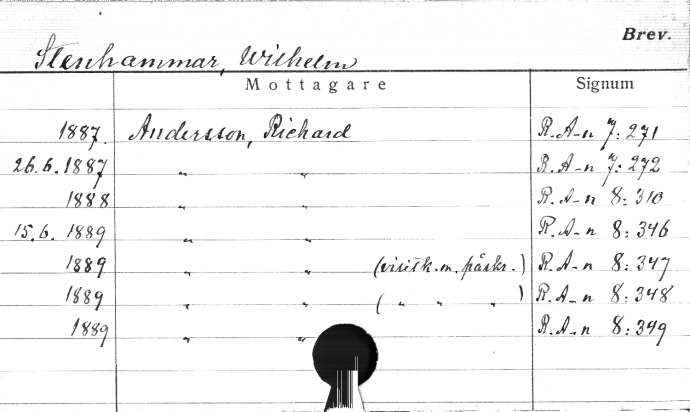 Brev.
Stenhammar, Wilhelm
Mottagare Signum
1887. Andersson, Richard R. A-n 7: 271
26.6.1887 " " R. A-n 7: 272
1888 " " R. A-n 8: 310
15.6.1889 " " R. A-n 8: 346
1889 " " (visitk. m. påskr.) R. A-n 8: 347
1889 " " ( " " " ) R. A-n 8: 348
1889 " " R. A-n 8: 349